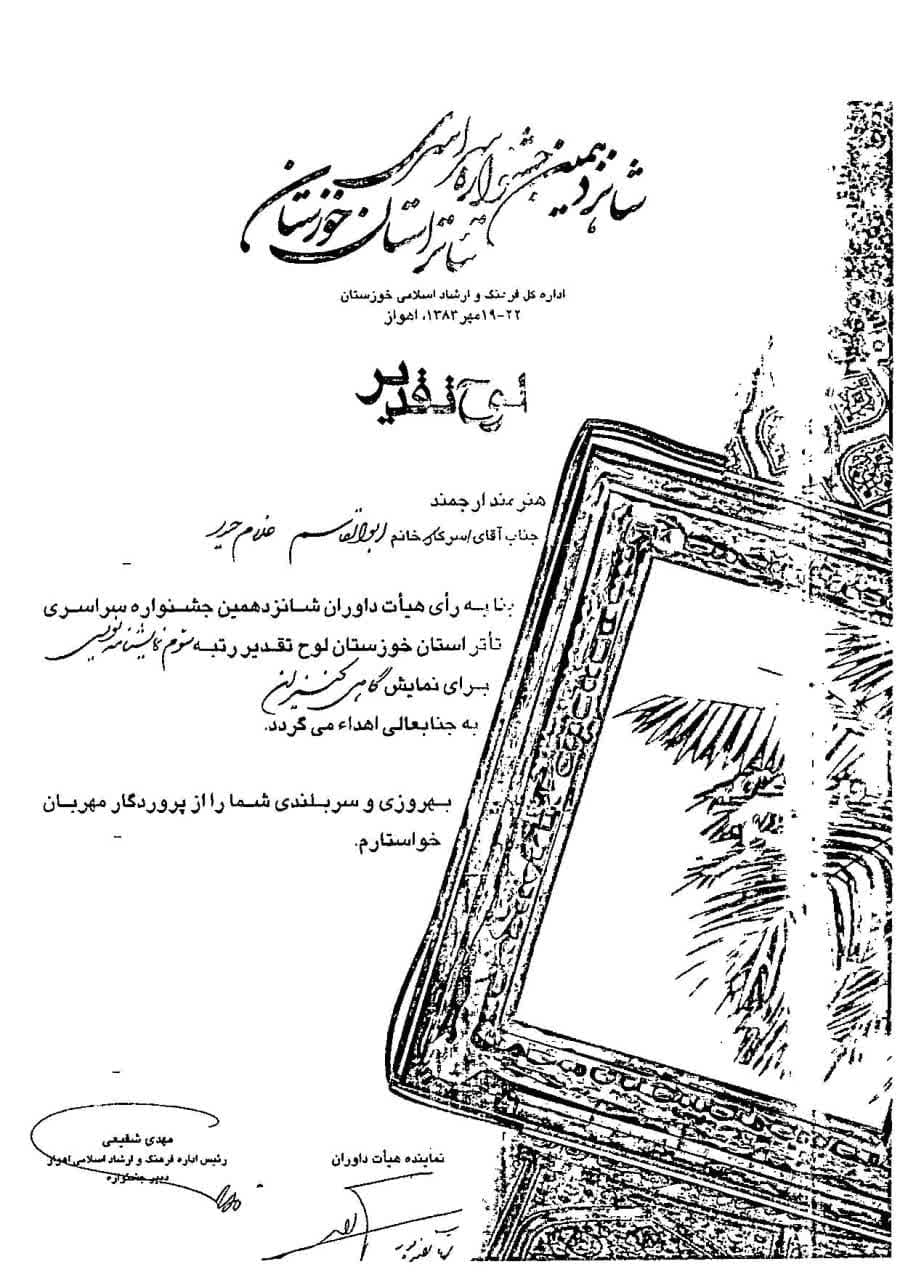 شانزدهمین جشنواره سراسری
تئاتر استان خوزستان
اداره کل فرهنگ و ارشاد اسلامی خوزستان
۲۲-۱۹ مهر ۱۳۸۳، اهواز
لوح تقدیر
هنرمند ارجمند
جناب آقای/سرکار خانم ابوالقاسم غلام حیدر
بنا به رأی هیأت داوران شانزدهمین جشنواره سراسری
تأتر استان خوزستان لوح تقدیر رتبه سوم نمایشنامه نویسی
برای نمایش گاهی
به جنابعالی اهداء می گردد.
بهروزی و سربلندی شما را از پروردگار مهربان
خواستارم.
نماینده هیأت داوران
مهدی شفیعی
رئیس اداره فرهنگ و ارشاد اسلامی اهواز
دبیر جشنواره